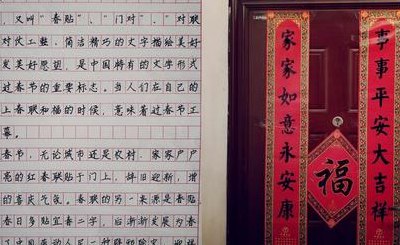 又叫“春贴”、“门对”、“对联
对仗工整、简洁精巧的文字描绘美好
发美好愿望，是中国特有的文学形式
过春节的重要标志。当人们在自己的
上春联和福的时候，意味着过春节正
幕。
春节，无论城市还是农村，家家户户
亮的红春联贴于门上，辞旧迎新，增
的喜庆气氛。春联的另一来源是春贴
春日多贴宜春二字，后渐渐发展为春
事事平安大吉祥
家家如意永安康
福